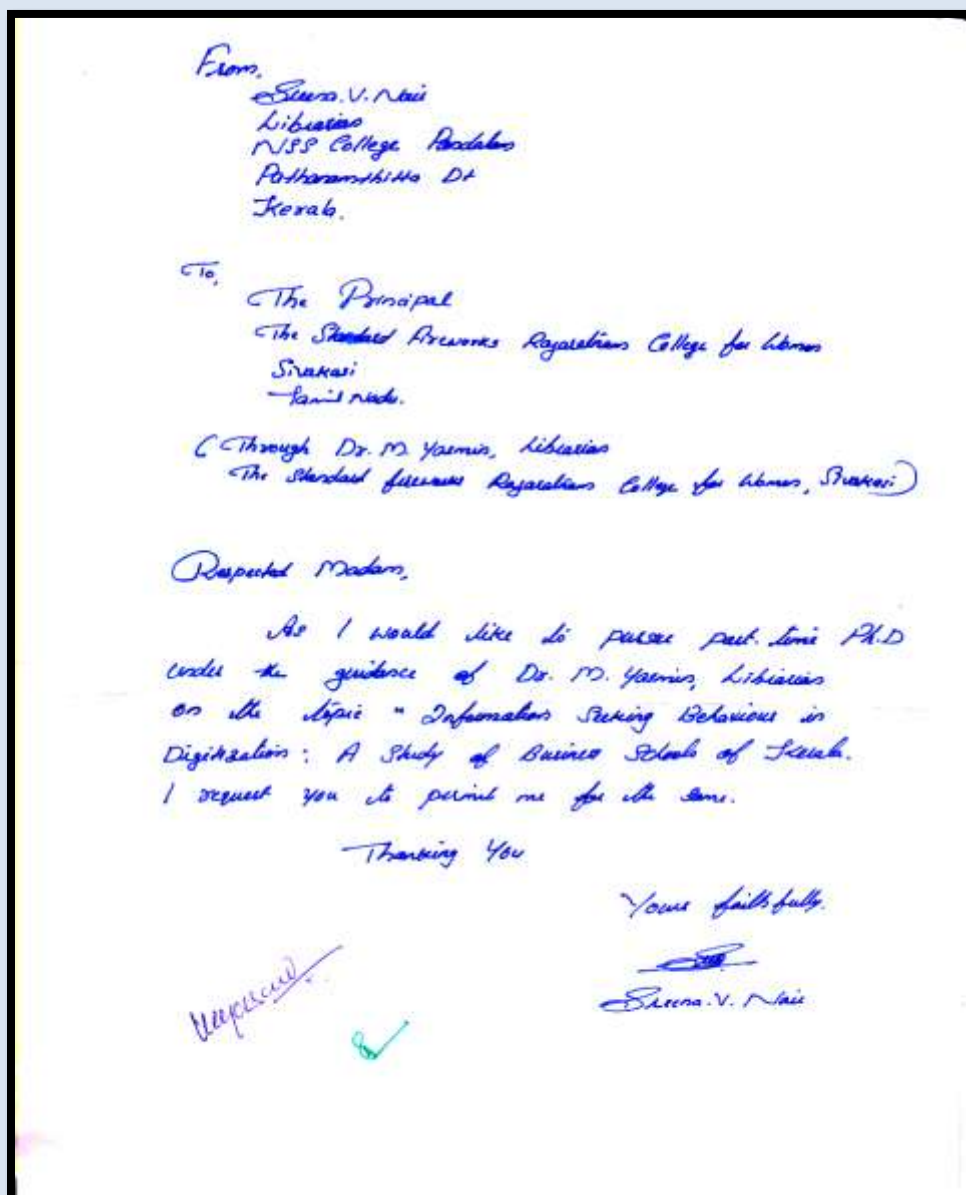 From,
Sreena. V. Nair
Librarian
NSS College Pandalam
Pathanamthitta Dt
Kerala.
To,
The Principal
The Standard Fireworks Rajaratnam College for Women
Sivakasi
Tamil Nadu.
(Through Dr. M. Yasmin, Librarian
The Standard fireworks Rajaratnam College for Women, Sivakasi)
Respected Madam,
As I would like to pursue part-time Ph.D
under the guidance of Dr. M. Yasmin, Librarian
on the topic " Information Seeking Behaviour in
Digitization: A Study of Business Schools of Kerala.
I request you to permit me for the same.
Thanking You
Yours faithfully,
Sreena. V. Nair